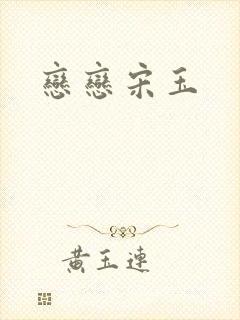 戀戀宋玉
黄玉連